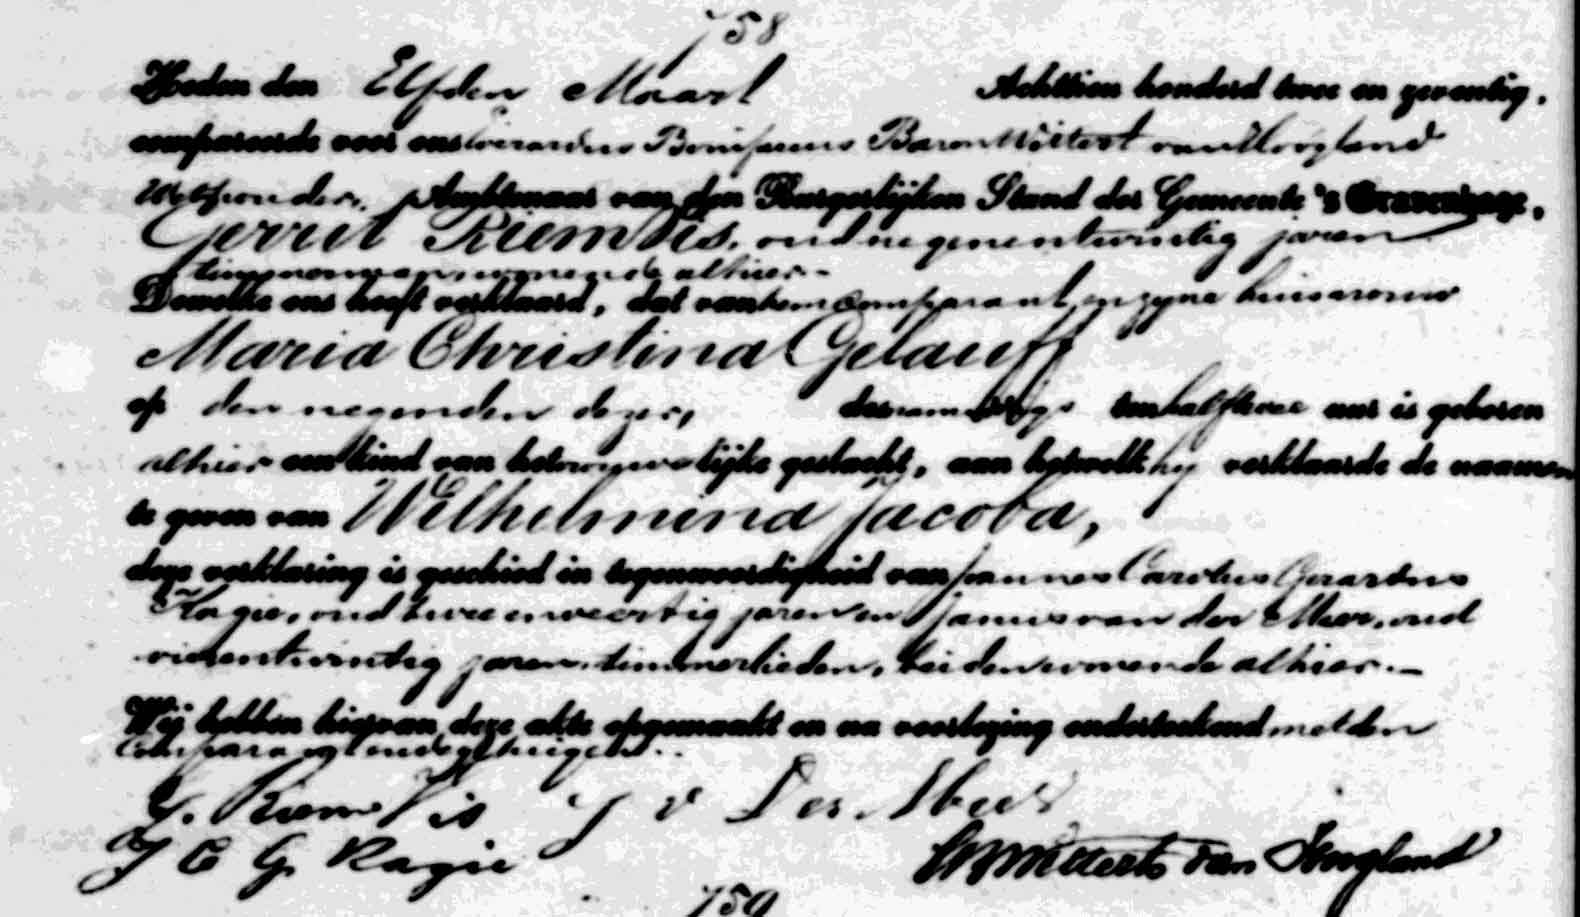 758
Heden den Elfden Maart Achttien honderd twee en zeventig,
compareerde voor ons Everardus Bonifacius Baron Wittert van Hoogland
Wethouder, Ambtenaar van den Burgerlijken Stand der Gemeente 's Gravenhage,
Gerrit Riem Vis, oud negenentwintig jaren
timmerman, wonende alhier.-
Dewelke ons heeft verklaard, dat van hem Comparant, en zyne huisvrouw
Maria Christina Gelauff
op den negenden dezer, des namiddags ten half twee uur is geboren
alhier een kind van het vrouwelijke geslacht, aan hetwelk hy verklaarde de naamen
te geven van Wilhelmina Jacoba,
deze verklaring is geschied in tegenwoordigheid van Joannes Carolus Gerardus
Ragie, oud twee en veertig jaren en Janus van der Meer, oud
vierentwintig jaren, timmerlieden, beiden wonende alhier.-
Wij hebben hiervan deze akte opgemaakt en na voorlezing onderteekend met den
Comparant en de getuigen.
G. Riem Vis J v Der Meer
J C G Ragie Wittert van Hoogland
759